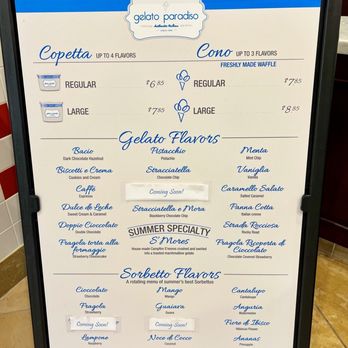 gelato paradiso
Authentic Italian
Copetta UP TO 4 FLAVORS
Cono UP TO 3 FLAVORS
FRESHLY MADE WAFFLE
REGULAR $6.85
REGULAR $7.85
LARGE $7.85
LARGE $8.85
Gelato Flavors
Bacio
Dark Chocolate Hazelnut
Pistacchio
Pistachio
Menta
Mint Chip
Biscotti e Crema
Cookies and Cream
Stracciatella
Chocolate Chip
Vaniglia
Vanilla
Caffè
Espresso
Coming Soon!
Caramello Salato
Salted Caramel
Dulce de Leche
Sweet Cream & Caramel
Stracciatella e Mora
Blackberry Chocolate Chip
Panna Cotta
Italian creme
Doppio Cioccolato
Double Chocolate
SUMMER SPECIALTY
S'Mores
House-made Campfire S'mores crushed and swirled
into a toasted marshmallow gelato
Strada Rocciosa
Rocky Road
Fragola torta alla
formaggio
Strawberry Cheesecake
Fragola Ricoperta di
Cioccolato
Chocolate Covered Strawberry
Sorbetto Flavors
A rotating menu of summer's best Sorbettos
Cioccolato
Chocolate
Mango
Mango
Cantalupo
Cantaloupe
Fragola
Strawberry
Guaiava
Guava
Anguria
Watermelon
Coming Soon!
Coming Soon!
Fiore di Ibisco
Hibiscus Flower
Lampone
Raspberry
Noce di Cocco
Coconut
Ananas
Pineapple